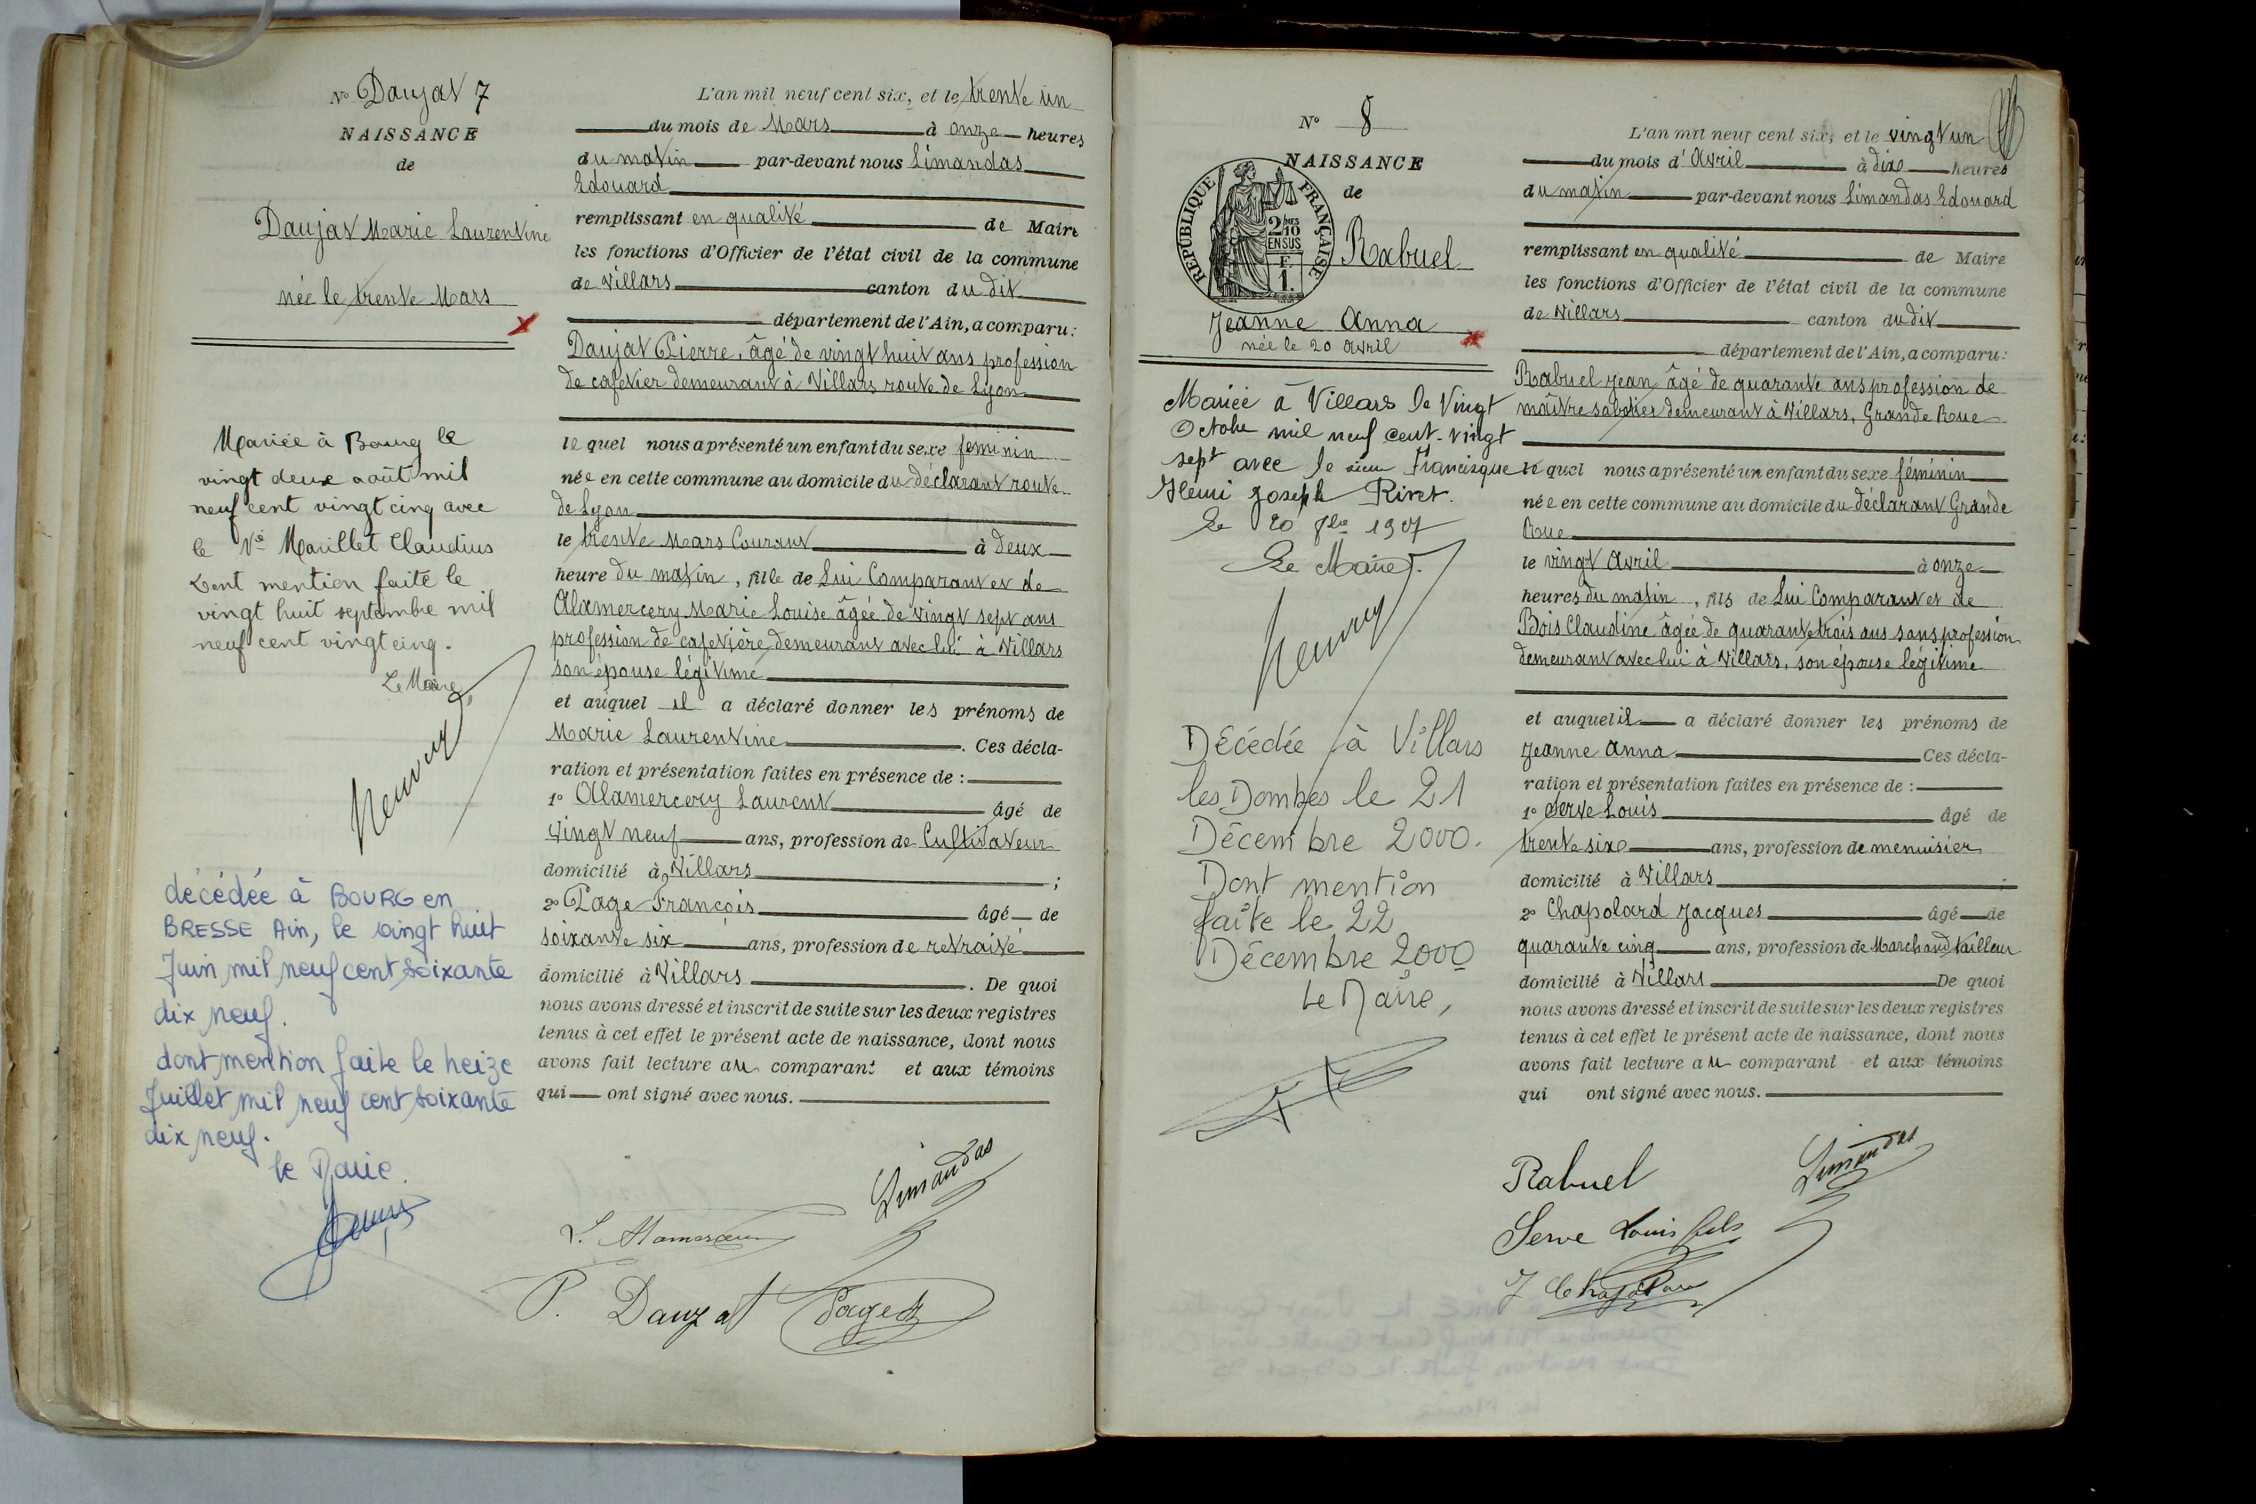 No Daujat 7
NAISSANCE
de
Daujat Marie Laurentine
née le trente Mars
Mariée à Bourg le
vingt deux août mil
neuf cent vingt cinq avec
le Sr Marillet Claudius
Dont mention faite le
vingt huit septembre mil
neuf cent vingt cinq.
Le Maire,
décédée à BOURG en
BRESSE Ain, le vingt huit
Juin mil neuf cent soixante
dix neuf.
dont mention faite le treize
Juillet mil neuf cent soixante
dix neuf.
le Maire.
L'an mil neuf cent six, et le trente un
du mois de Mars à onze heures
du matin par-devant nous Limandas
Edouard
remplissant en qualité de Maire
les fonctions d'Officier de l'état civil de la commune
de Villars canton du dit
département de l'Ain, a comparu:
Daujat Pierre, âgé de vingt huit ans profession
de cafetier demeurant à Villars route de Lyon
le quel nous a présenté un enfant du sexe feminin
née en cette commune au domicile du déclarant route
de Lyon
le trente Mars Courant à deux
heure du matin, fille de Lui Comparant et de
Alamercery Marie Louise âgée de vingt sept ans
profession de cafetière demeurant avec lui à Villars
son épouse légitime
et auquel il a déclaré donner les prénoms de
Marie Laurentine. Ces décla-
ration et présentation faites en présence de :
1° Alamercery Laurent âgé de
vingt neuf ans, profession de Cultivateur
domicilié à Villars ;
2° Page François âgé de
soixante six ans, profession de retraité
domicilié à Villars. De quoi
nous avons dressé et inscrit de suite sur les deux registres
tenus à cet effet le présent acte de naissance, dont nous
avons fait lecture au comparant et aux témoins
qui ont signé avec nous.
Limandas
P. Daujat
No 8
NAISSANCE
de
RÉPUBLIQUE FRANÇAISE
2/10
EN SUS
F.
1.
Rabuel
Jeanne Anna
née le 20 avril
Mariée à Villars le Vingt
Octobre mil neuf cent-vingt
sept avec le sieur Francisque
Henri Joseph Rivet.
Le 20 8bre 1927
Le Maire.
Décédée à Villars
les Dombes le 21
Décembre 2000.
Dont mention
faite le 22
Décembre 2000
Le Maire,
L'an mil neuf cent six, et le vingt un
du mois d'Avril à dix heures
du matin par-devant nous Limandas Edouard
remplissant en qualité de Maire
les fonctions d'Officier de l'état civil de la commune
de Villars canton du dit
département de l'Ain, a comparu:
Rabuel Jean âgé de quarante ans profession de
maître sabotier demeurant à Villars, Grande Rue
le quel nous a présenté un enfant du sexe féminin
née en cette commune au domicile du déclarant Grande
Rue
le vingt Avril à onze
heures du matin, fils de Lui Comparant et de
Bois Claudine âgée de quarante trois ans sans profession
demeurant avec lui à Villars, son épouse légitime
et auquel il a déclaré donner les prénoms de
Jeanne Anna Ces décla-
ration et présentation faites en présence de :
1° Serve Louis âgé de
trente six ans, profession de menuisier
domicilié à Villars ;
2° Chapolard Jacques âgé de
quarante cinq ans, profession de Marchand tailleur
domicilié à Villars De quoi
nous avons dressé et inscrit de suite sur les deux registres
tenus à cet effet le présent acte de naissance, dont nous
avons fait lecture au comparant et aux témoins
qui ont signé avec nous.
Rabuel
Limandas
Serve Louis fils